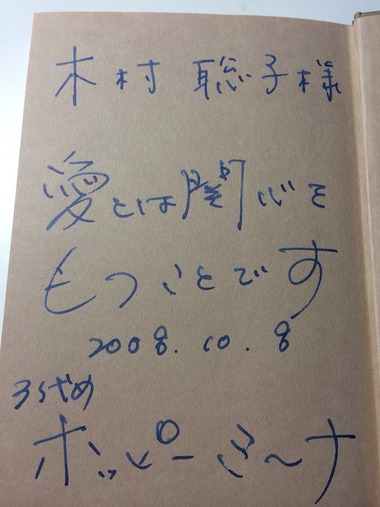 木村 聡子様
愛とは関心を
もつことです
2008.10.8
3代め
ホッピーミーナ